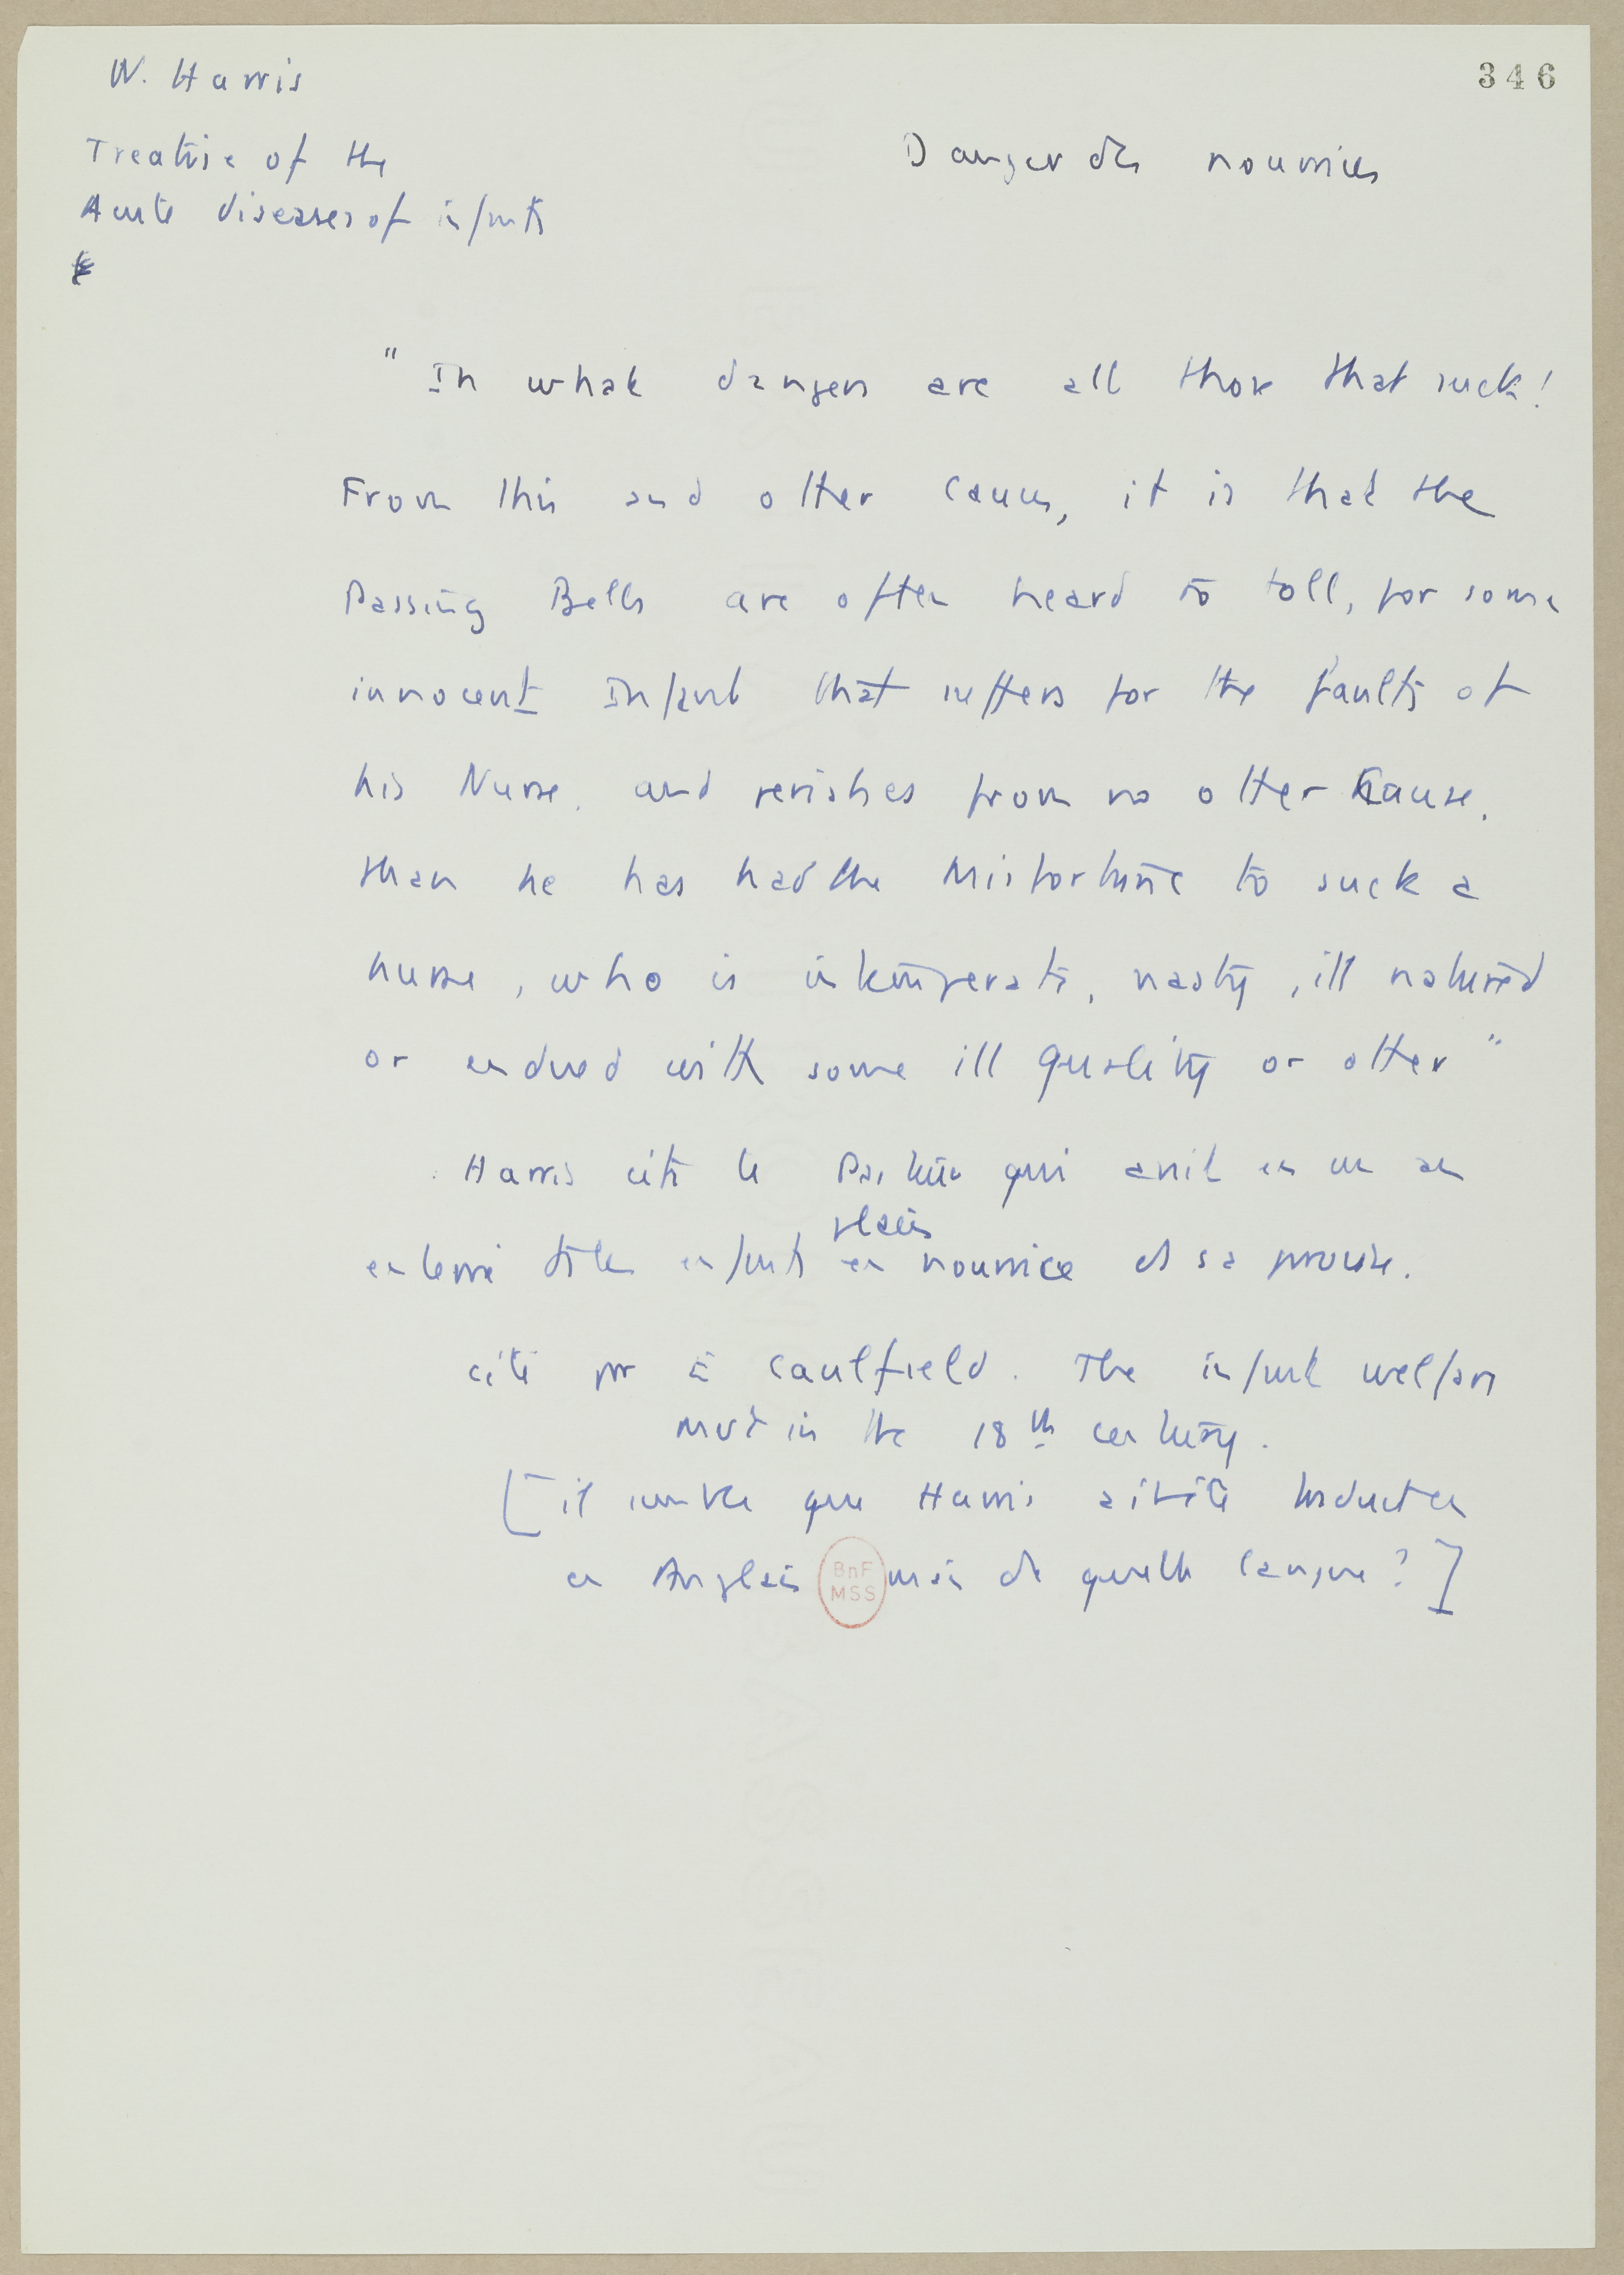 W. Harris
346
Treatise of the
Danger des nourrices
Acute diseases of infants
" In what dangers are all those that suck!
From this and other causes, it is that the
Passing Bells are often heard to toll, for some
innocent Infant that suffers for the faults of
his Nurse, and perishes from no other cause,
than he has had the Misfortune to suck a
nurse, who is intemperate, nasty, ill natured
or endued with some ill quality or other "
Harris cite le Pasteur qui avait en un an
enterré des enfants en nourrice ds sa paroisse.
placés
cité par E Caulfield. The infant welfare
mvt in the 18th century.
[ il semble que Harris ait été traduct en
en Anglais mais de quelle langue? ]
BnF
MSS